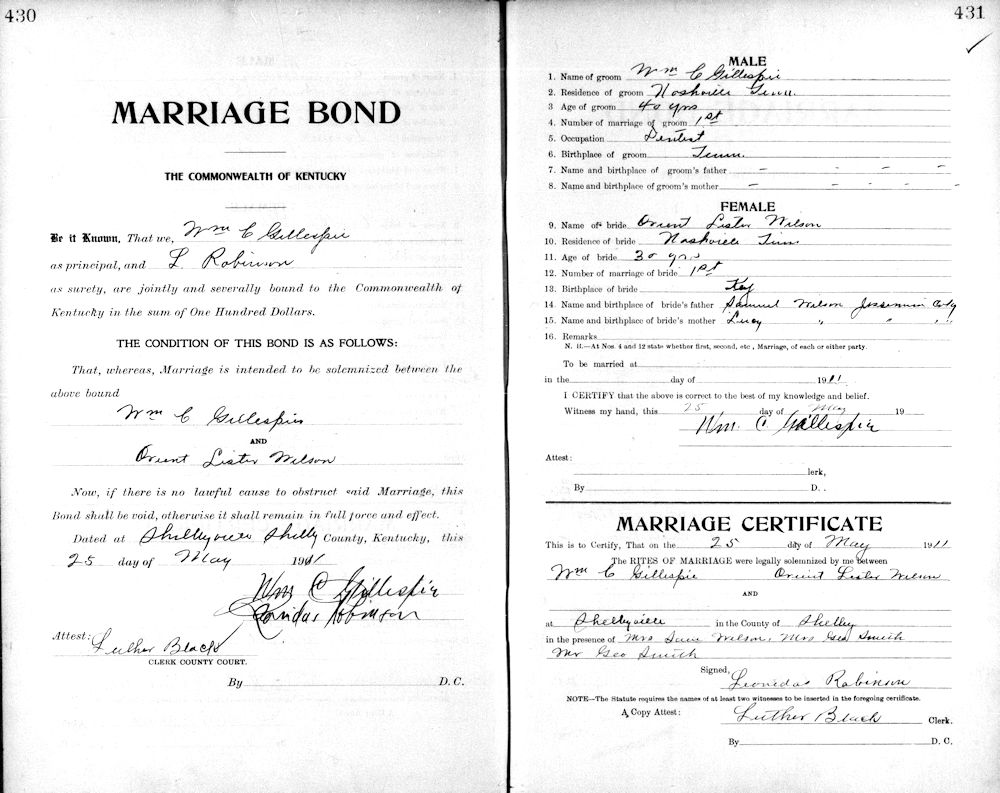 430
MARRIAGE BOND
THE COMMONWEALTH OF KENTUCKY
Be it Known, That we, Wm C Gillespie
as principal, and L. Robinson
as surety, are jointly and severally bound to the Commonwealth of
Kentucky in the sum of One Hundred Dollars.
THE CONDITION OF THIS BOND IS AS FOLLOWS:
That, whereas, Marriage is intended to be solemnized between the
above bound
Wm C Gillespie
AND
Orient Lister Wilson
Now, if there is no lawful cause to obstruct said Marriage, this
Bond shall be void, otherwise it shall remain in full force and effect.
Dated at Shelbyville Shelby County, Kentucky, this
25 day of May 1911
Wm C Gillespie
Leonidas Robinson
Attest: Luther Black
CLERK COUNTY COURT.
By D. C.
431
MALE
1. Name of groom Wm C Gillespie
2. Residence of groom Nashville Tenn.
3 Age of groom 40 yrs
4. Number of marriage of groom 1st
5. Occupation Dentist
6. Birthplace of groom Tenn.
7. Name and birthplace of groom's father - - - -
8. Name and birthplace of groom's mother - - - -
FEMALE
9. Name of bride Orient Lister Wilson
10. Residence of bride Nashville Tenn
11. Age of bride 30 yrs
12. Number of marriage of bride 1st
13. Birthplace of bride Ky
14. Name and birthplace of bride's father Samuel Wilson Jessamine Coty
15. Name and birthplace of bride's mother Lucy " " "
16. Remarks
N. B.—At Nos. 4 and 12 state whether first, second, etc., Marriage, of each or either party.
To be married at
in the day of 1911
I CERTIFY that the above is correct to the best of my knowledge and belief.
Witness my hand, this 25 day of May 19
Wm. C Gillespie
Attest:
lerk,
By D. .
MARRIAGE CERTIFICATE
This is to Certify, That on the 25 day of May 1911
The RITES OF MARRIAGE were legally solemnized by me between
Wm C Gillespie Orient Lister Wilson
AND
at Shelbyville in the County of Shelby
in the presence of Mrs Wilson, Mrs Geo Smith
Mr Geo Smith
Signed, Leonidas Robinson
NOTE—The Statute requires the names of at least two witnesses to be inserted in the foregoing certificate.
A Copy Attest: Luther Black Clerk.
By D. C.